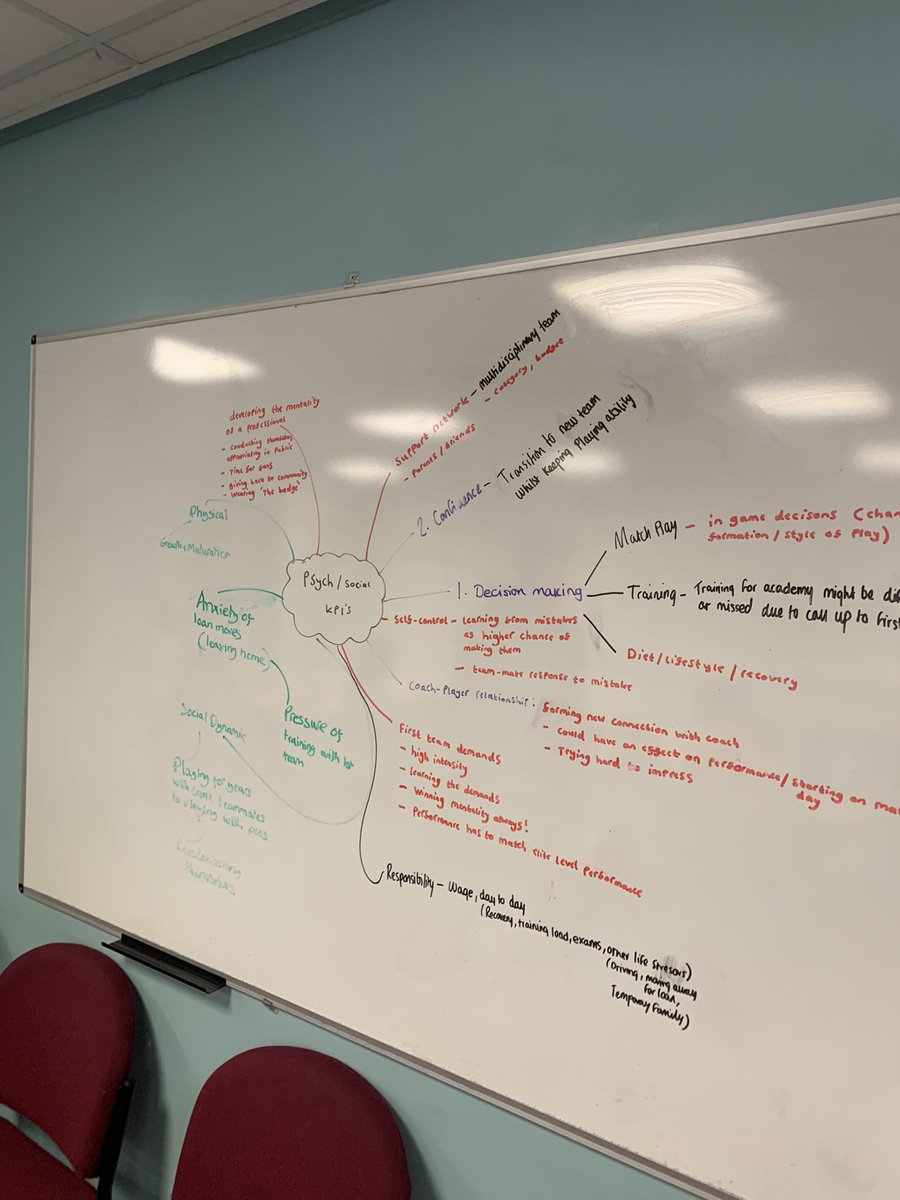 developing the mentality
of a professional
- Conducting themselves
appropriately in public
- Time for fans
- Giving back to community
- Wearing 'The badge'
Physical
Growth + Maturation
Anxiety of
loan moves
(leaving home)
Pressure of
training with 1st
team
Social Dynamic
Playing for years
with same teammates
to playing with pros
Reestablishing
themselves
Psych / social
KPI's
Support network - multidisciplinary team
- Parents / friends - category, budget
2. Confidence - Transition to new team
whilst keeping Playing ability
1. Decision making
Match Play - in game decisons (chan
formation / style of Play)
Training - Training for academy might be di
or missed due to call up to First
Diet / lifestyle / recovery
- Self-control - learning from mistakes
as higher chance of
making them
- team-mate response to mistake
Coach-Player relationship: forming new connection with coach
- could have an effect on performance / starting on ma
day
- Trying hard to impress
First team demands
- high intensity
- learning the demands
- Winning mentality always!
- Performance has to match elite level performance
Responsibility - Wage, day to day
(Recovery, training load, exams, other life stresors)
(Driving, moving away
for loan,
Temporary family)